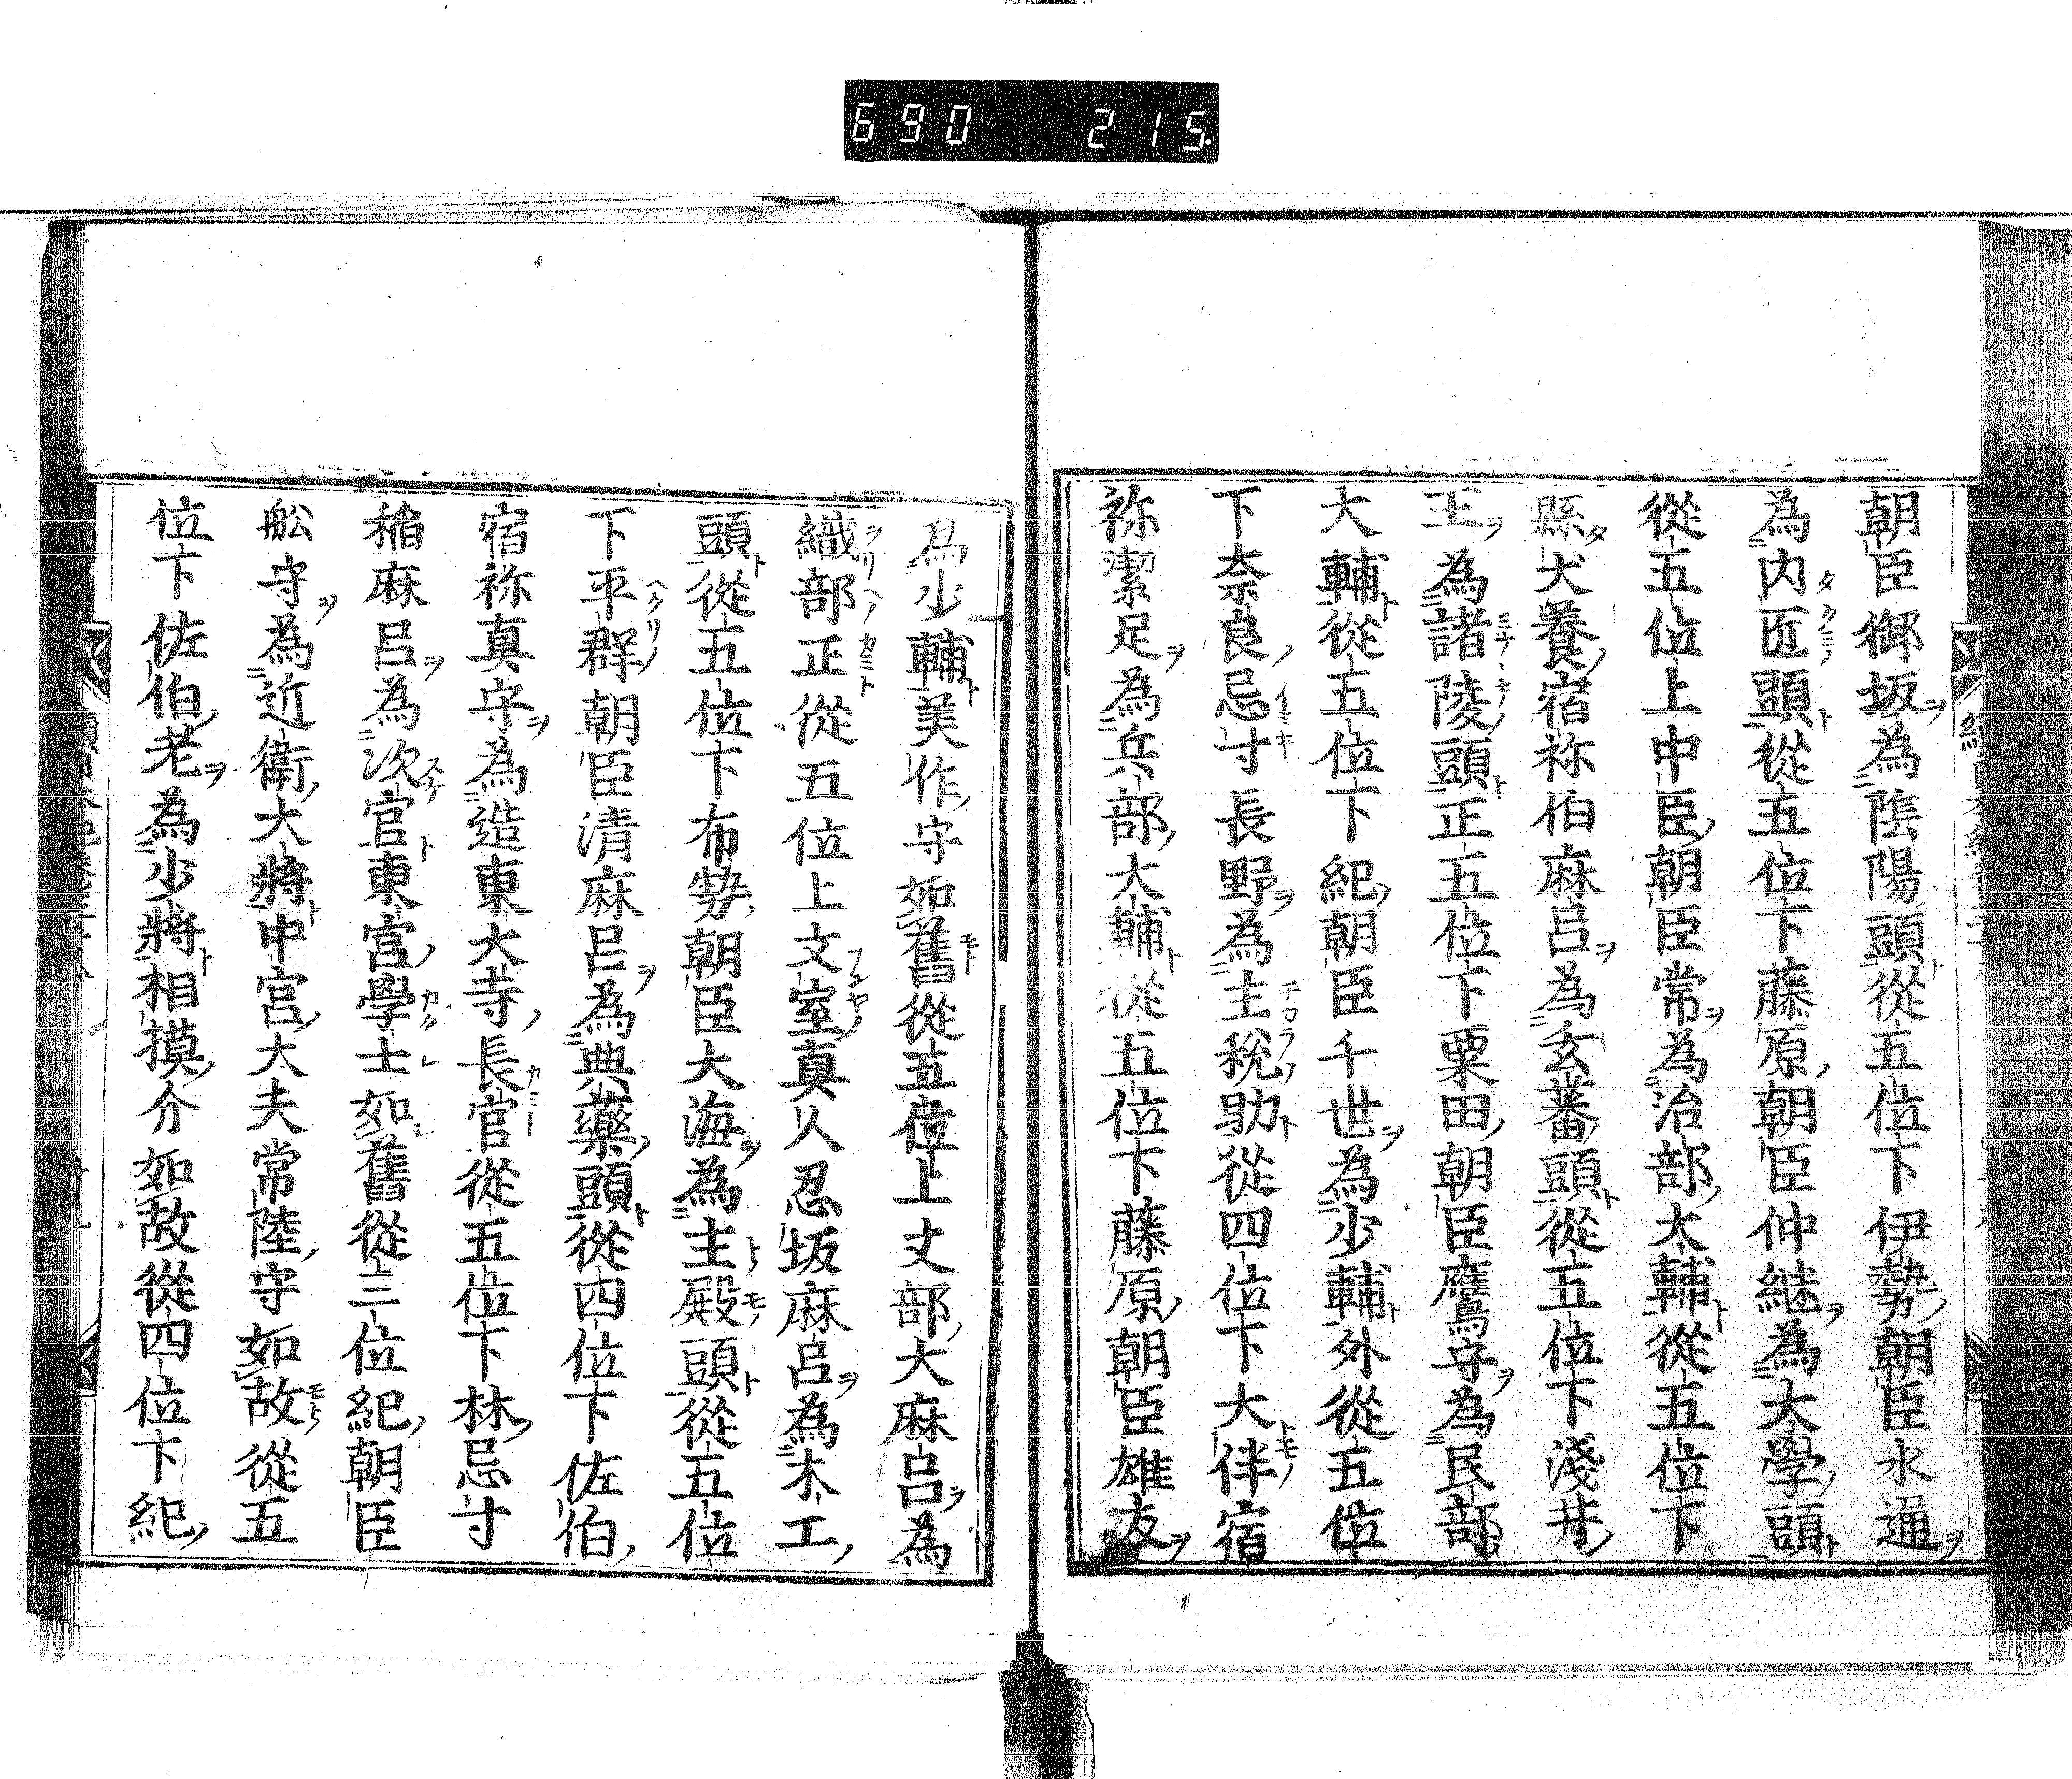 690 215
朝臣御坂ヲ為陰陽頭ト從五位下伊勢ノ朝臣水通ヲ
為内匠頭ト從五位下藤原ノ朝臣仲継ヲ為大學ノ頭ト
從五位上中臣ノ朝臣常ヲ為治部ノ大輔ト從五位下
縣犬養ノ宿祢伯麻呂ヲ為玄蕃ノ頭ト從五位下淺井ノ
王ヲ為諸陵頭ト正五位下粟田ノ朝臣鷹守ヲ為民部ノ
大輔ト從五位下紀ノ朝臣千世ヲ為少輔ト外從五位
下奈良ノ忌寸長野ヲ為主税助ト從四位下大伴宿
祢潔足ヲ為兵部ノ大輔ト從五位下藤原ノ朝臣雄友ヲ
為少輔ト美作ノ守如舊從五位上丈部ノ大麻呂ヲ為
織部正從五位上文室真人忍坂麻呂ヲ為木工ノ
頭ト從五位下布勢ノ朝臣大海ヲ為主殿頭ト從五位
下平群朝臣清麻呂ヲ為典藥ノ頭ト從四位下佐伯ノ
宿祢真守ヲ為造東大寺ノ長官從五位下林ノ忌寸
稲麻呂ヲ為次官ト東宮ノ學士如舊從三位紀ノ朝臣
舩守ヲ為近衛ノ大將ト中宮ノ大夫常陸ノ守如故從五
位下佐伯ノ老ヲ為少將ト相摸ノ介如故從四位下紀ノ